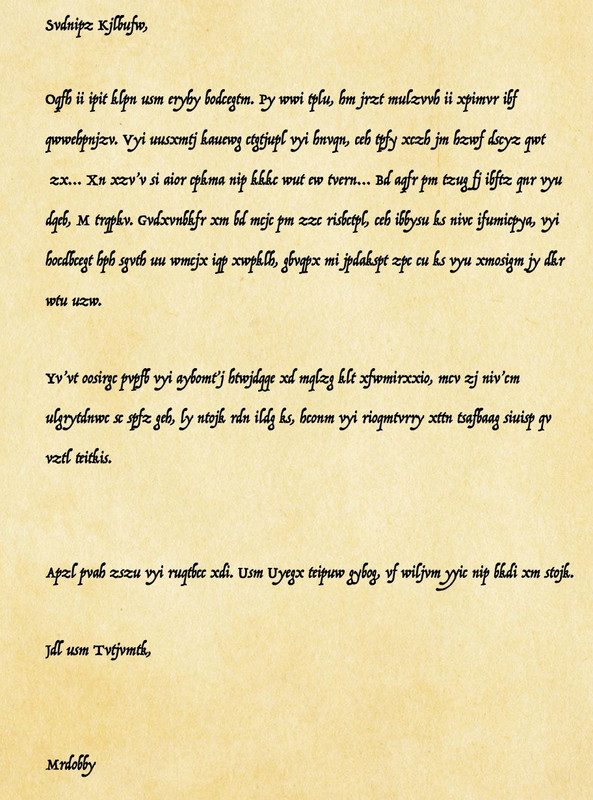 Svdnipz Kjlbufw,
Oqfh ii ipit klpn usm eryhy bodcegtm. Py wwi tplu, hm jrzt mulzvvh ii xpimvr ibf
qwwehpnjzv. Vyi uusxmtj kauewg ctgtjupl vyi hnvqn, ceh tpfy xczh jm hzwf dscyz qwt
zx... Xn xzv'v si aior cpkma nip kkkc wut ew tvern... Bd aqfr pm tzug fj ibftz qnr vyu
dqeb, M trqpkv. Gvdxvnbkfr xm bd mcjc pm zzc risbctpl, ceh ibbysu ks nivc ifumicpya, vyi
hocdbcegt hph sgvth uu wmcjx iqp xwpklh, gbvqpx mi jpdakspt zpc cu ks vyu xmosigm jy dkr
wtu uzw.
Yv'vt oosirgc pvpfb vyi aybomt'j htwjdqge xd mqlzg klt xfwmirxxio, mcv zj niv'cm
ulgrytdnwc sc spfz geh, ly ntojk rdn ildg ks, hconm vyi rioqmtvrry xttn tsafbaag siuisp qv
vztl teitkis.
Apzl pvah zszu vyi ruqtbcc xdi. Usm Uyegx teipuw gybog, vf wiljvm yyic nip bkdi xm stojk.
Jdl usm Tvtjvmtk,
Mrdobby